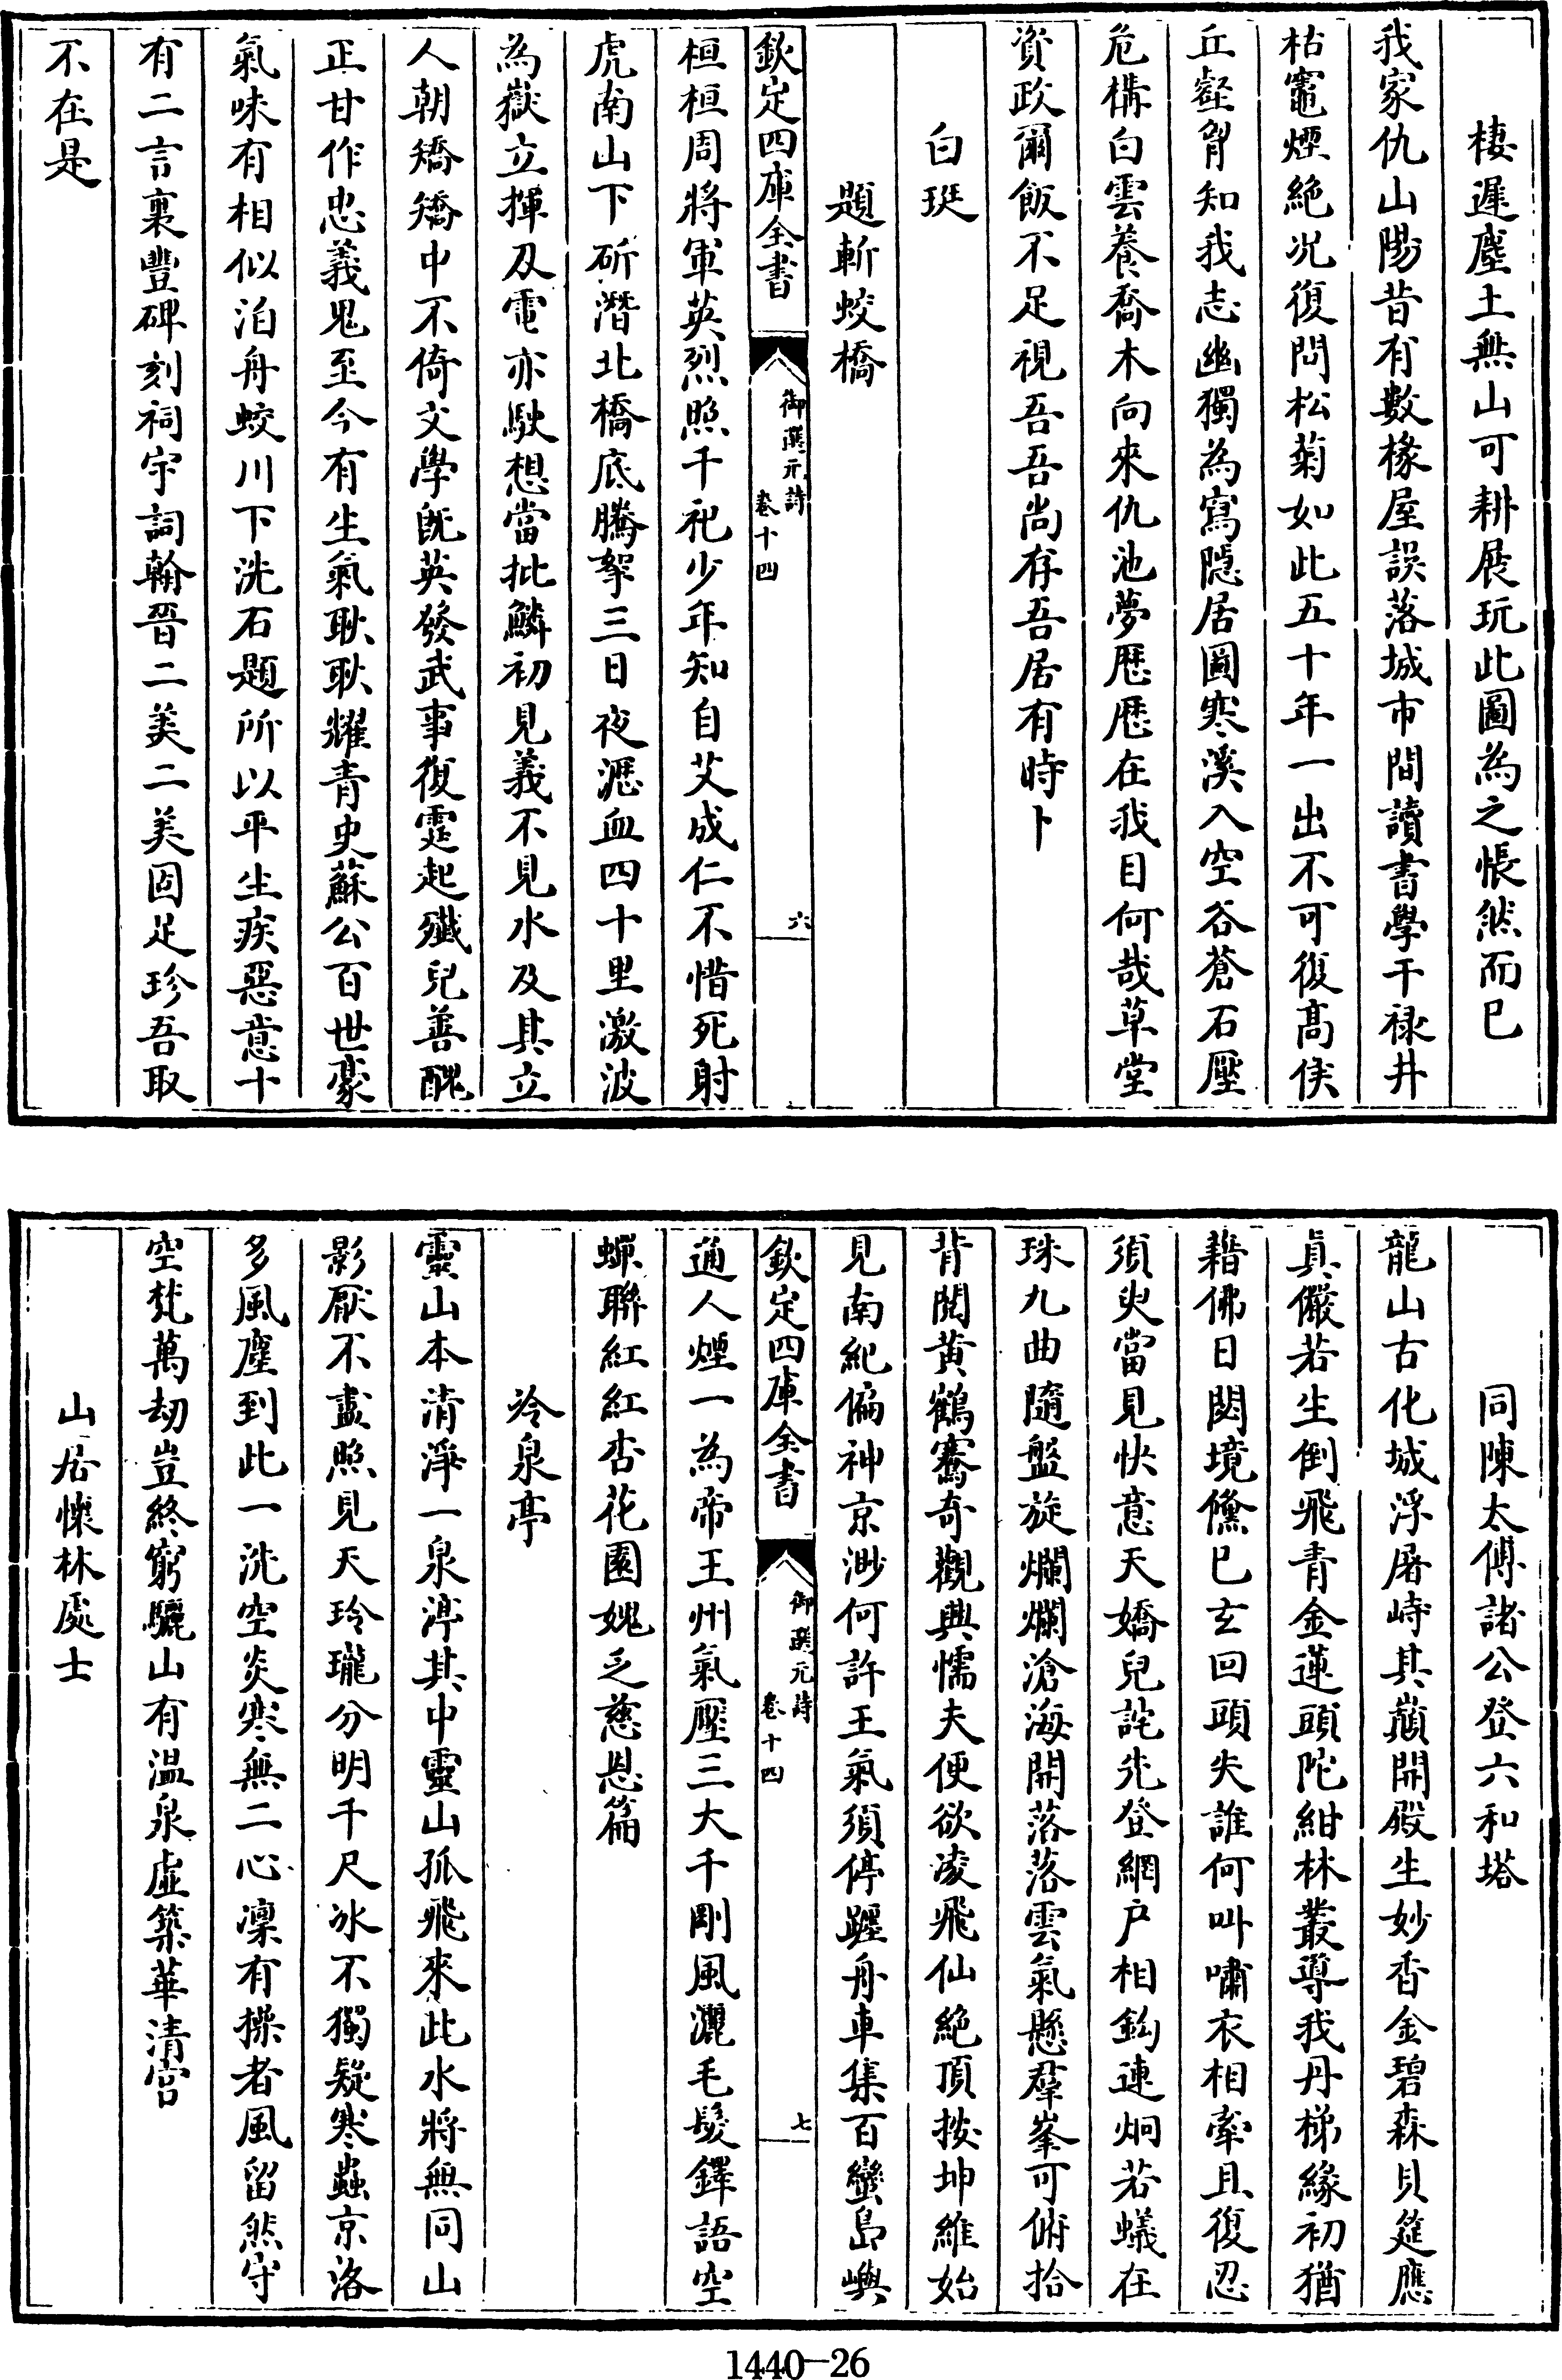 棲遲塵土無山可耕展玩此圖為之悵然而已
我家仇山陽昔有數椽屋誤落城市間讀書學干禄井
枯竈煙絶况復問松菊如此五十年一出不可復髙侯
丘壑胷知我志幽獨為寫隠居圖寒溪入空谷蒼石壓
危構白雲養喬木向來仇池夢歴歴在我目何哉草堂
資政爾飯不足視吾吾尚存吾居有時卜
白珽
題斬蛟橋
欽定四庫全書
御選元詩
卷十四
六
桓桓周將軍英烈照千祀少年知自艾成仁不惜死射
虎南山下斫潛北橋底騰拏三日夜㵣血四十里激波
為嶽立揮及電亦駛想當批鱗初見義不見水及其立
人朝矯矯中不倚文學旣英發武事復霆起殲兒善醜
正甘作忠義鬼至今有生氣耿耿耀青史蘇公百世豪
氣味有相似泊舟蛟川下洗石題所以平生疾惡意十
有二言裏豐碑刻祠宇詞翰晉二美二美固足珍吾取
不在是
同陳太傅諸公登六和塔
龍山古化城浮屠峙其巔開殿生妙香金碧森貝筵應
真儼若生倒飛青金蓮頭陀紺林叢導我丹梯緣初猶
藉佛日閟境儵已玄回頭失誰何叫嘯衣相牽且復忍
須臾當見快意天嬌兒詫先登網戶相鈎連炯若蟻在
珠九曲隨盤旋爛爛滄海開落落雲氣懸羣峯可俯拾
背閲黄鶴騫奇觀興懦夫便欲凌飛仙絶頂按坤維始
見南紀偏神京渺何許王氣須停躔舟車集百蠻島嶼
欽定四庫全書
御選元詩
卷十四
七
通人煙一為帝王州氣壓三大千剛風灑毛髮鐸語空
蟬聯紅紅杏花園媿乏慈恩篇
冷泉亭
靈山本清淨一泉渟其中靈山孤飛來此水將無同山
影厭不盡照見天玲瓏分明千尺冰不獨疑寒蟲京洛
多風塵到此一洗空炎寒無二心凜有操者風留然守
空梵萬劫豈終窮驪山有溫泉虛築華清宮
山居懷林處士
1440-26